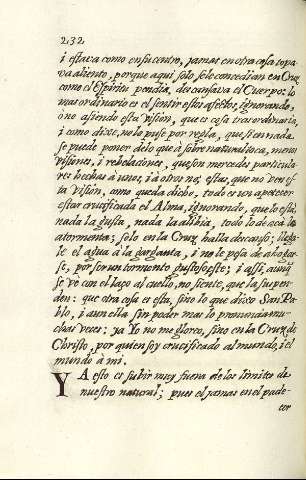 232
i estava como en su centro, jamas en otra cosa topa-
va aliento, porque aqui solo se lo concedian en Cruz,
como el Espiritu pendia, descansava el Cuerpo: lo
mas ordinario es el sentir estos afectos, ignorando,
one asiendo esta visión, que es cosa trasordinaria,
i como dixe, no lo puse por regla, que si en nada
se puede poner delo que à sobre naturaleza, menos
visiones, i rebelaciones, que son mercedes particula-
res hechas à unos, i à otros no; estas, que no ven es-
ta visión, como queda dicho, todo es un apetecer
estar crucificada el Alma, ignorando, que lo està,
nada la gusta, nada la alibia, todo lo de acà la
atormenta; solo en la Cruz halla descanso; llega-
le el agua à la garganta, i no le pesa de ahogar-
se, por ser un tormento gustoso este; i assi, aunq
se vè con el laço al cuello, no siente, que la suspen-
den: que otra cosa es esta, sino lo que dixo San Pa-
blo, i aun ella sin poder mas lo pronuncia mu-
chas veces: ya Yo no me glorео, sino en la Cruz de
Christo, por quien soy crucificado al mundo, i el
mundo à mi.
YA esto es subir muy fuera de los limites de
nuestro natural; pues el jamas en el pade-
cer